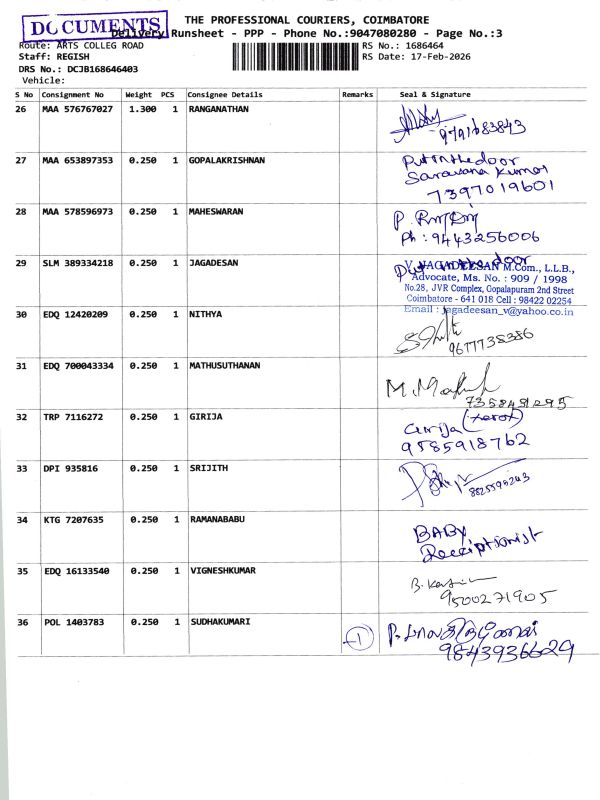 DOCUMENTS
THE PROFESSIONAL COURIERS, COIMBATORE
Delivery Runsheet - PPP - Phone No.:9047080280 - Page No.:3
Route: ARTS COLLEG ROAD
RS No.: 1686464
Staff: REGISH
RS Date: 17-Feb-2026
DRS No.: DCJB168646403
Vehicle:
S No Consignment No Weight PCS Consignee Details Remarks Seal & Signature
26 MAA 576767027 1.300 1 RANGANATHAN
9791683843
27 MAA 653897353 0.250 1 GOPALAKRISHNAN
Put in the door
Saravana Kumar
7397019601
28 MAA 578596973 0.250 1 MAHESWARAN
P.
Ph : 9443256006
29 SLM 389334218 0.250 1 JAGADESAN
Put the door
V. JAGADEESAN M.Com., L.L.B.,
Advocate, Ms. No. : 909 / 1998
No.28, JVR Complex, Gopalapuram 2nd Street
Coimbatore - 641 018 Cell : 98422 02254
Email : jagadeesan_v@yahoo.co.in
30 EDQ 12420209 0.250 1 NITHYA
9677738386
31 EDQ 700043334 0.250 1 MATHUSUTHANAN
M.
7358491295
32 TRP 7116272 0.250 1 GIRIJA
Girija (xerox)
9585918762
33 DPI 935816 0.250 1 SRIJITH
8825595243
34 KTG 7207635 0.250 1 RAMANABABU
BABY
Receiptionist
35 EDQ 16133540 0.250 1 VIGNESHKUMAR
B.
9500271905
36 POL 1403783 0.250 1 SUDHAKUMARI
-1
P.
9843936629